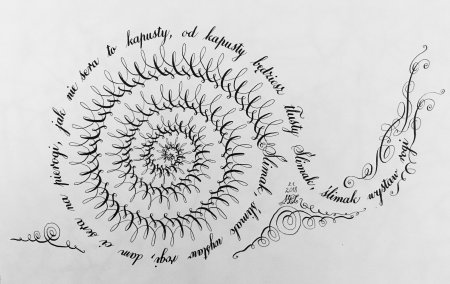 Ślimak ślimak wystaw rogi, dam ci sera na pierogi, jak nie sera to kapusty, od kapusty będziesz tłusty Ślimak, ślimak wystaw rogi
2018